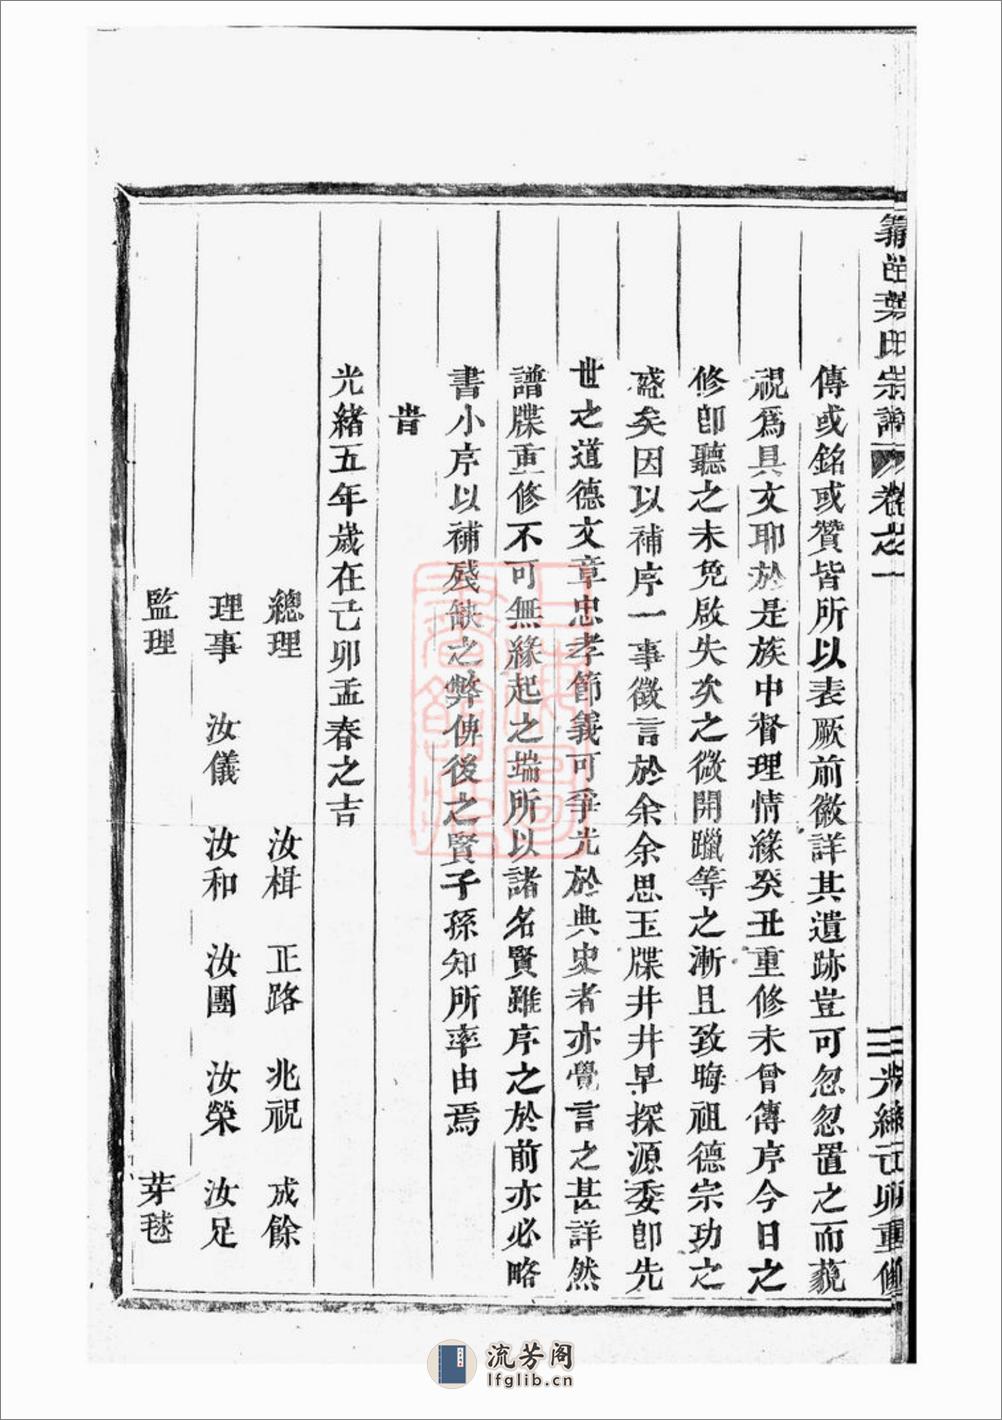 葉氏宗譜 卷之一 三 光緒己卯重修
傳或銘或贊皆所以表厥前徽詳其遺跡豈可忽忽置之而藐
視爲具文耶於是族中督理情緣癸丑重修未曾傳序今日之
修卽聽之未免啟失次之微開躐等之漸且致晦祖德宗功之
惑矣因以補序一事徵言於余余思玉牒井井早探源委卽先
世之道德文章忠孝節義可爭光於典史者亦覺言之甚詳然
譜牒重修不可無緣起之端所以諸名賢雖序之於前亦必略
書小序以補殘缺之弊俾後之賢子孫知所率由焉
旹
光緒五年歲在己卯孟春之吉
總理 汝楫 正路 兆祝 成餘
理事 汝儀 汝和 汝團 汝榮 汝足
監理 芽毬
流芳阁
lfglib.cn